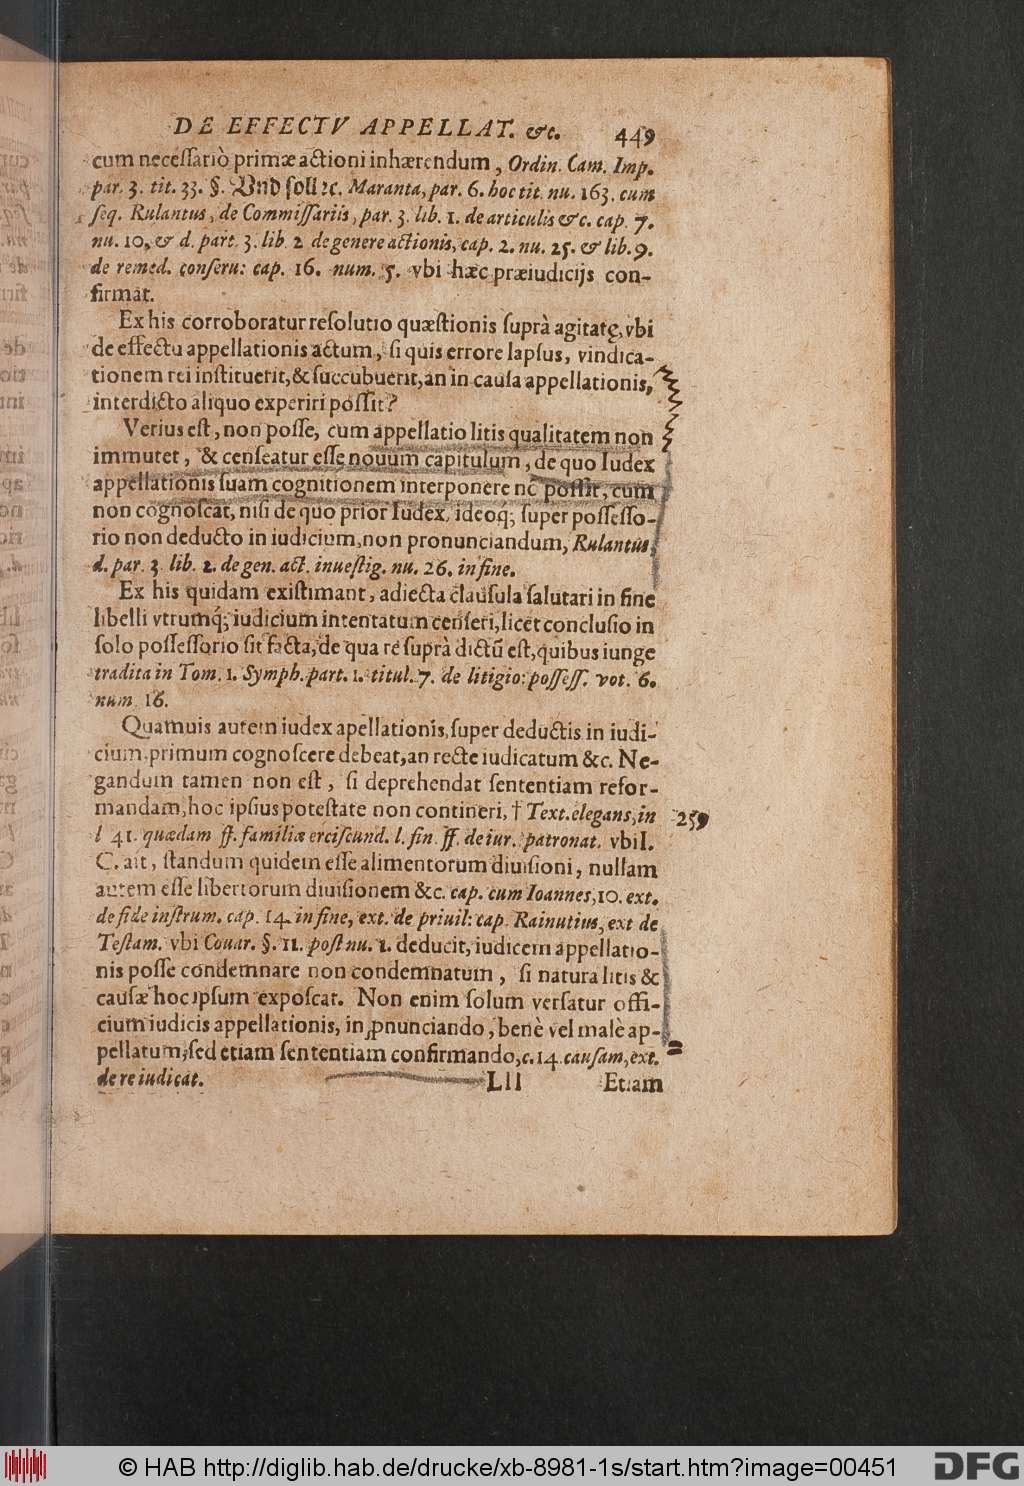 DE EFFECTV APPELLAT. &c. 449
cum neceſſariò primæ actioni inhærendum, Ordin. Cam. Imp.
par. 3. tit. 33. §. Vnd ſoll ꝛc. Maranta, par. 6. hoc tit. nu. 163. cum
ſeq. Rulantus, de Commiſſariis, par. 3. lib. 1. de articulis &c. cap. 7.
nu. 10, & d. part. 3. lib. 2 de genere actionis, cap. 2. nu. 25. & lib. 9.
de remed. conſeru: cap. 16. num. 5. vbi hæc præiudicijs con-
firmat.
Ex his corroboratur reſolutio quæſtionis ſuprà agitatę, vbi
de effectu appellationis actum, ſi quis errore lapſus, vindica-
tionem rei inſtituerit, & ſuccubuerit, an in cauſa appellationis,
interdicto aliquo experiri poſſit?
Verius eſt, non poſſe, cum appellatio litis qualitatem non
immutet, & cenſeatur eſſe nouum capitulum, de quo Iudex
appellationis ſuam cognitionem interponere nõ poſſit, cum
non cognoſcat, niſi de quo prior Iudex, ideoq́; ſuper poſſeſſo-
rio non deducto in iudicium, non pronunciandum, Rulantus,
d. par. 3. lib. 2. de gen. act. inueſtig. nu. 26. in fine.
Ex his quidam exiſtimant, adiecta clauſula ſalutari in fine
libelli vtrumq́; iudicium intentatum cenſeri, licet concluſio in
ſolo poſſeſſorio ſit facta, de qua re ſuprà dictũ eſt, quibus iunge
tradita in Tom. 1. Symph. part. 1. titul. 7. de litigio: poſſeſſ. vot. 6.
num. 16.
Quamuis autem iudex apellationis, ſuper deductis in iudi-
cium, primum cognoſcere debeat, an recte iudicatum &c. Ne-
gandum tamen non eſt, ſi deprehendat ſententiam refor-
mandam, hoc ipſius poteſtate non contineri, † Text. elegans, in 259
l 41. quædam ff. familiæ erciſcund. l. fin. ff. de iur. patronat. vbi I.
C. ait, ſtandum quidem eſſe alimentorum diuiſioni, nullam
autem eſſe libertorum diuiſionem &c. cap. cum Ioannes, 10. ext.
de fide inſtrum. cap. 14. in fine, ext. de priuil: cap. Rainutius, ext de
Teſtam. vbi Couar. §. 11. poſt nu. 1. deducit, iudicem appellatio-
nis poſſe condemnare non condemnatum, ſi natura litis &
cauſæ hoc ipſum expoſcat. Non enim ſolum verſatur offi-
cium iudicis appellationis, in ꝓnunciando, benè vel malè ap-
pellatum, ſed etiam ſententiam confirmando, c. 14. cauſam, ext.
de re iudicat.
Lll Etiam
© HAB http://diglib.hab.de/drucke/xb-8981-1s/start.htm?image=00451
DFG